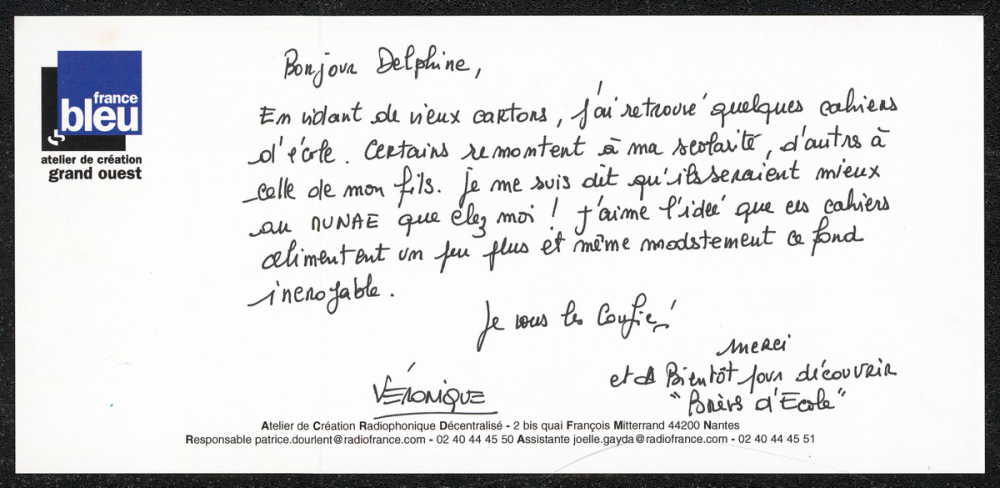 france
bleu
atelier de création
grand ouest
Bonjour Delphine,
En vidant de vieux cartons, j'ai retrouvé quelques cahiers
d'école. Certains remontent à ma scolarité, d'autres à
celle de mon fils. Je me suis dit qu'ils seraient mieux
au MUNAE que chez moi ! J'aime l'idée que ces cahiers
alimentent un peu plus et même modestement ce fond
incroyable.
Je vous les confie !
merci
et à Bientôt pour découvrir
"Brèves d'Ecole"
VÉRONIQUE
Atelier de Création Radiophonique Décentralisé - 2 bis quai François Mitterrand 44200 Nantes
Responsable patrice.dourlent@radiofrance.com - 02 40 44 45 50 Assistante joelle.gayda@radiofrance.com - 02 40 44 45 51